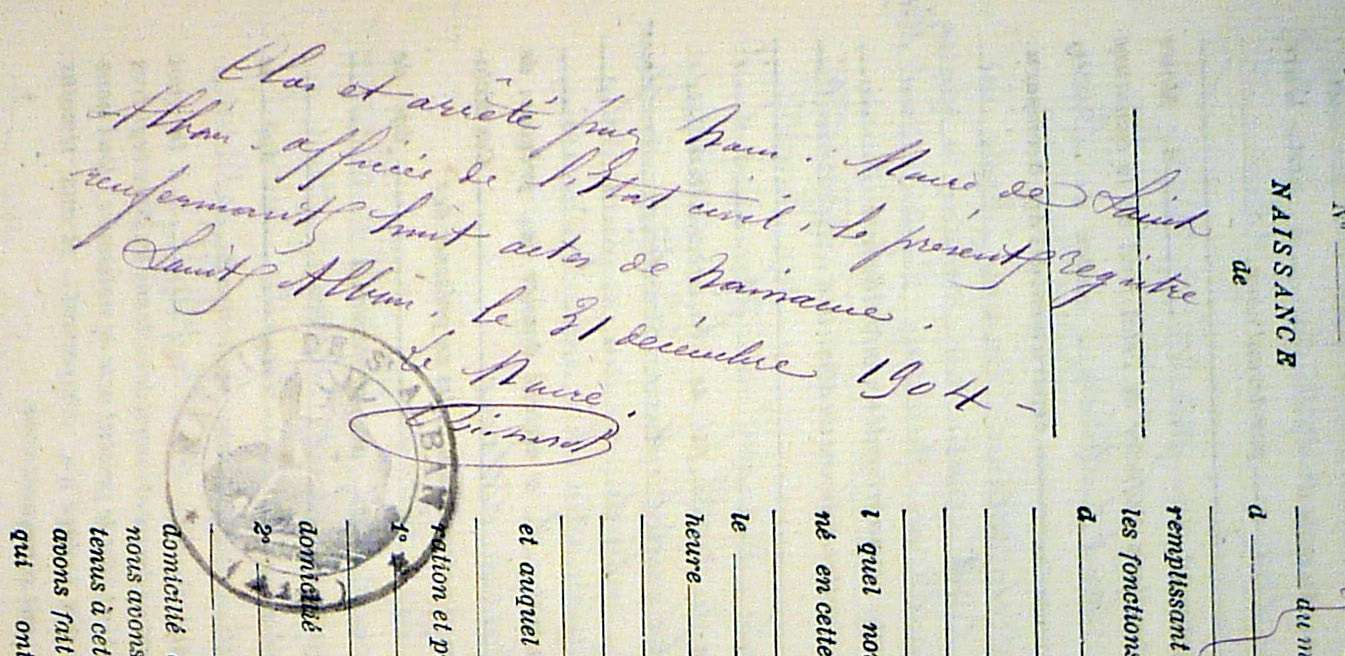 Clos et arrêté par Nous. Maire de Saint
Alban. officier de l'Etat civil, le present registre
renfermant huit actes de Naissance.
Saint Alban, le 31 décembre 1904 -
Le Maire,
DE ST ALBAN
(AIN)
N°
NAISSANCE
de
du m
d
remplissant
les fonctions
d
l quel no
né en cette
le
heure
et auquel
ration et p
1°
domicilié
2°
domicilié
nous avons
tenus à cet
avons fait
qui ont